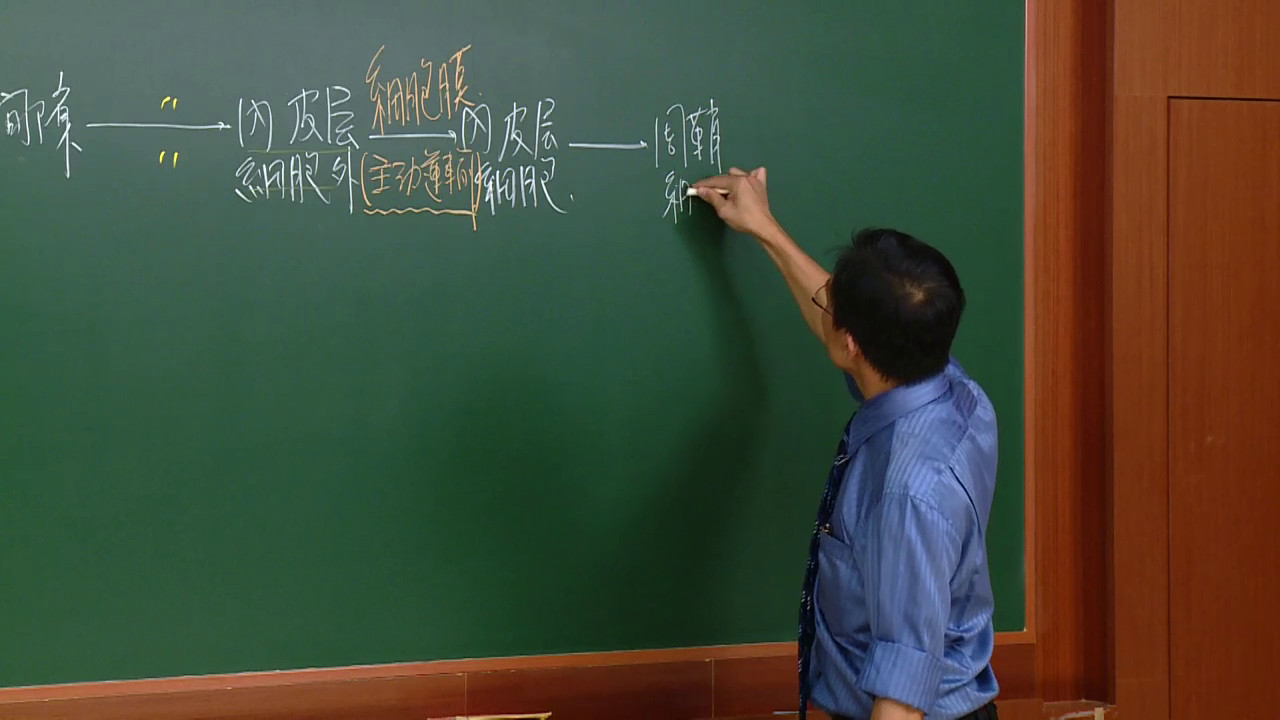 間隙 → 內皮层 → 內皮层 → 周鞘
〃 細胞膜
〃 細胞外 (主动運輸) 細胞. 細